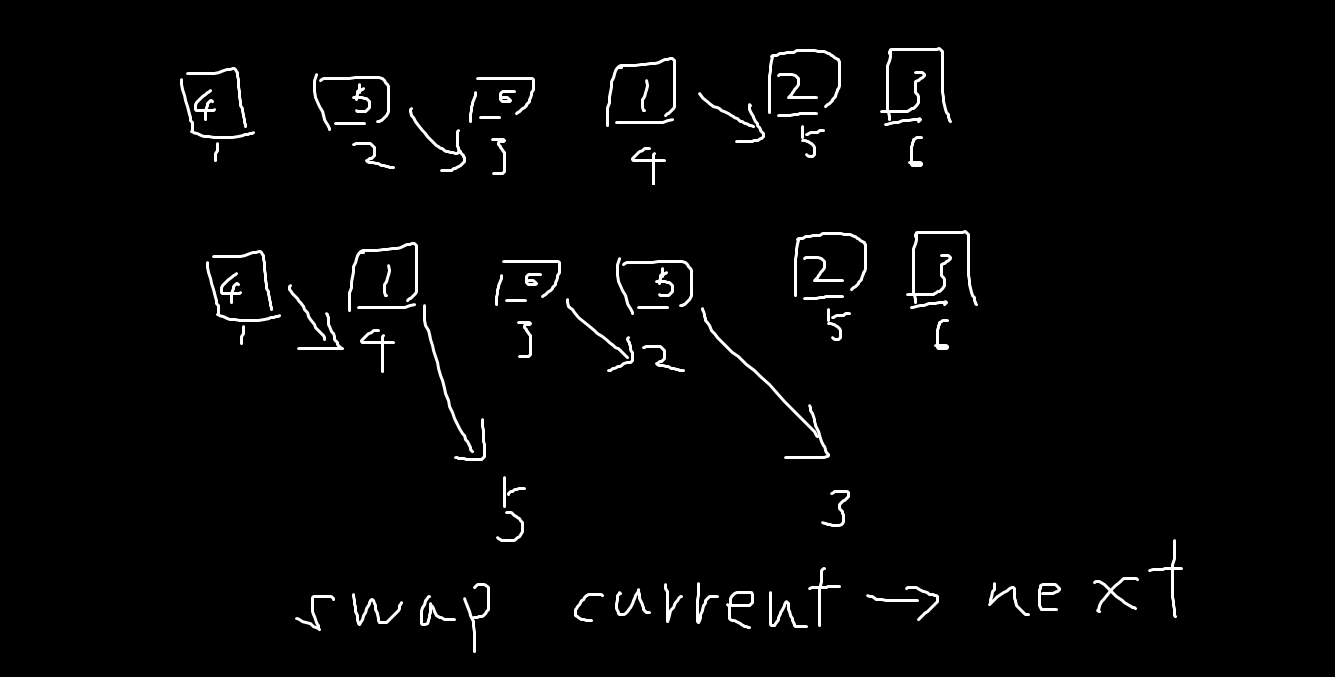 4 5 6 1 2 3
1 2 3 4 5 6
4 1 6 5 2 3
1 4 3 2 5 6
5 3
swap current → next